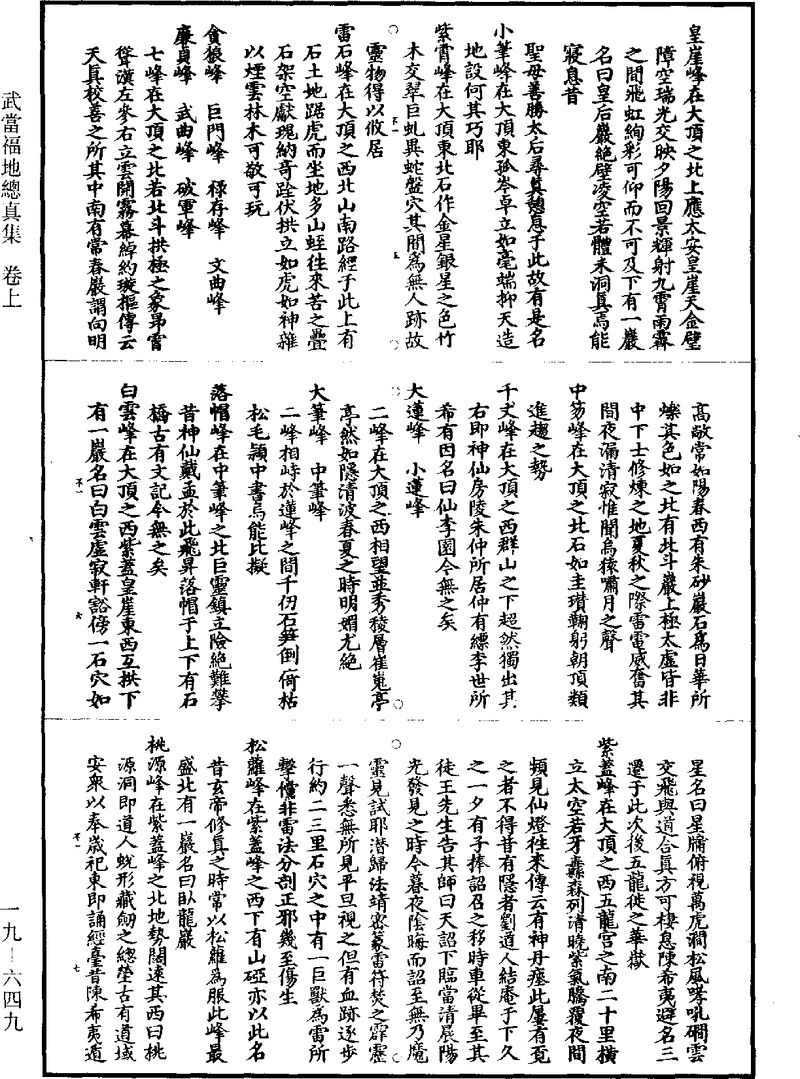 武當福地總真集　卷上
皇崖峰在大頂之北上應太安皇崖天金壁
障空瑞光交映夕陽回景輝射九霄雨霽
之間飛虹絢彩可仰而不可及下有一巖
名曰皇后巖絕壁凌空若體未洞真焉能
寢息昔
聖母善勝太后尋真憩息于此故有是名
小筆峰在大頂東孤岑卓立如毫端抑天造
地設何其巧耶
紫霄峰在大頂東北石作金星銀星之色竹
木交翠巨虬異蛇盤穴其間為無人跡故
靈物得以攸居
雷石峰在大頂之西北山南路經于此上有
石土地踞虎而坐地多山蛭往來苦之疊
石架空獻瑰納奇跧伏拱立如虎如神雜
以煙雲林木可敬可玩
貪狼峰　巨門峰　祿存峰　文曲峰
廉貞峰　武曲峰　破軍峰
七峰在大頂之北若北斗拱極之象昂霄
聳漢左參右立雲開霧幕綽約璇樞傳云
天真校善之所其中南有常春巖謂向明
高敞常如陽春西有朱砂巖石為日華所
爍其色如之北有北斗巖上極太虛皆非
中下士修煉之地夏秋之際雷電威奮其
間夜漏清寂惟聞烏猿嘯月之聲
中笏峰在大頂之北石如圭瓚鞠躬朝頂類
進趨之勢
千丈峰在大頂之西群山之下超然獨出其
右即神仙房陵朱仲所居仲有縹李世所
希有因名曰仙李園今無之矣
大蓮峰　小蓮峰
二峰在大頂之西相望並秀稜層崔嵬亭
亭然如隱清波春夏之時明媚尤絕
大筆峰　中筆峰
二峰相峙於蓮峰之間千仞石筍倒倚枯
松毛穎中書烏能比擬
落帽峰在中筆峰之北巨靈鎮立險絕難攀
昔神仙戴孟於此飛昇落帽于上下有石
橋古有文記今無之矣
白雲峰在大頂之西紫蓋皇崖東西互拱下
有一巖名曰白雲虛寂軒豁傍一石穴如
星名曰星牖俯視萬虎澗松風哮吼磵雲
交飛與道合真方可棲息陳希夷避名三
遷于此次後五龍徙之華嶽
紫蓋峰在大頂之西五龍宮之南二十里橫
立太空若牙纛森列清曉紫氣騰覆夜間
頻見仙燈往來傳云有神丹瘞此屢有覓
之者不得昔有隱者劉道人結庵于下久
之一夕有子捧詔召之移時車從畢至其
徒王先生告其師曰天詔下臨當清晨陽
光發見之時今暮夜陰晦而詔至無乃魔
靈見試耶潛歸法靖密篆雷符焚之霹靂
一聲悉無所見平旦視之但有血跡逐步
行約二三里石穴之中有一巨獸為雷所
擊儻非雷法分剖正邪幾至傷生
松蘿峰在紫蓋峰之西下有山碰亦以此名
昔玄帝修真之時常以松蘿為服此峰最
盛北有一巖名曰臥龍巖
桃源峰在紫蓋峰之北地勢闊遠其西曰桃
源洞即道人蛻形藏劒之總塋古有道域
安眾以奉歲祀東即誦經臺昔陳希夷遁
一九—六四九